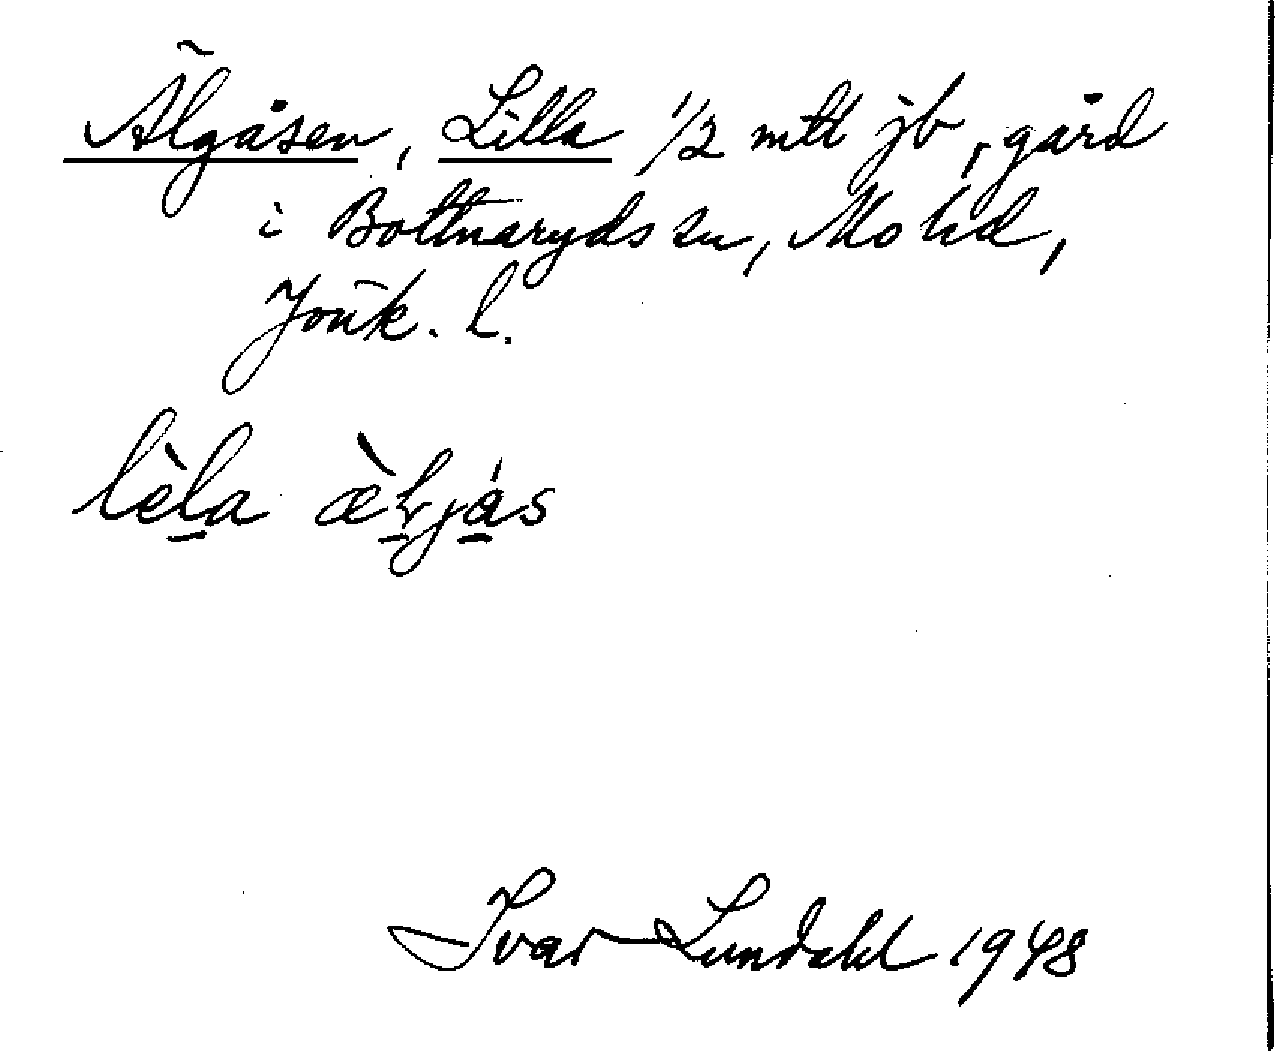 Älgåsen, Lilla 1/2 mtl jb, gård
i Bottnaryds sn, Mo hd,
Jönk. l.
lèla æ̀ljås
Ivar Lundahl 1948